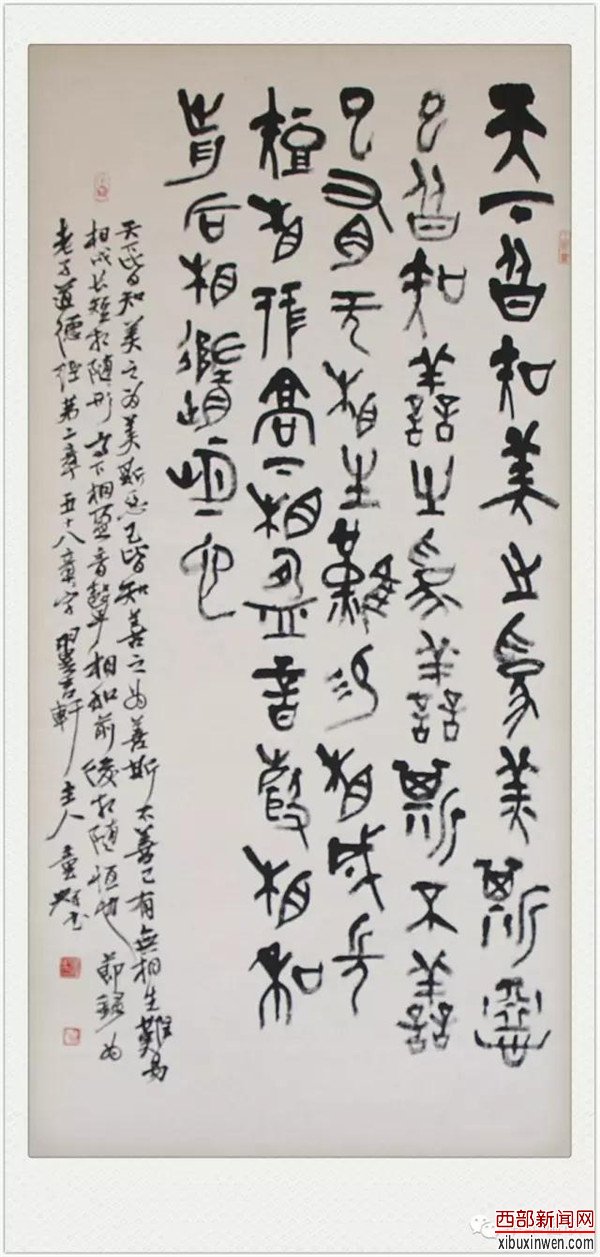 天下皆知美之為美斯惡
已皆知善之為善斯不善
已有无相生難易相成長
短相形高下相盈音聲相和
前后相隨恒也
天下皆知美之为美斯恶已皆知善之为善斯不善已有無相生難易
相成长短相随形高下相盈音聲相和前後相随恒也 節録为
老子道德经第二章五十八章字 軒主人 书
西部新闻网
xibuxinwen.com